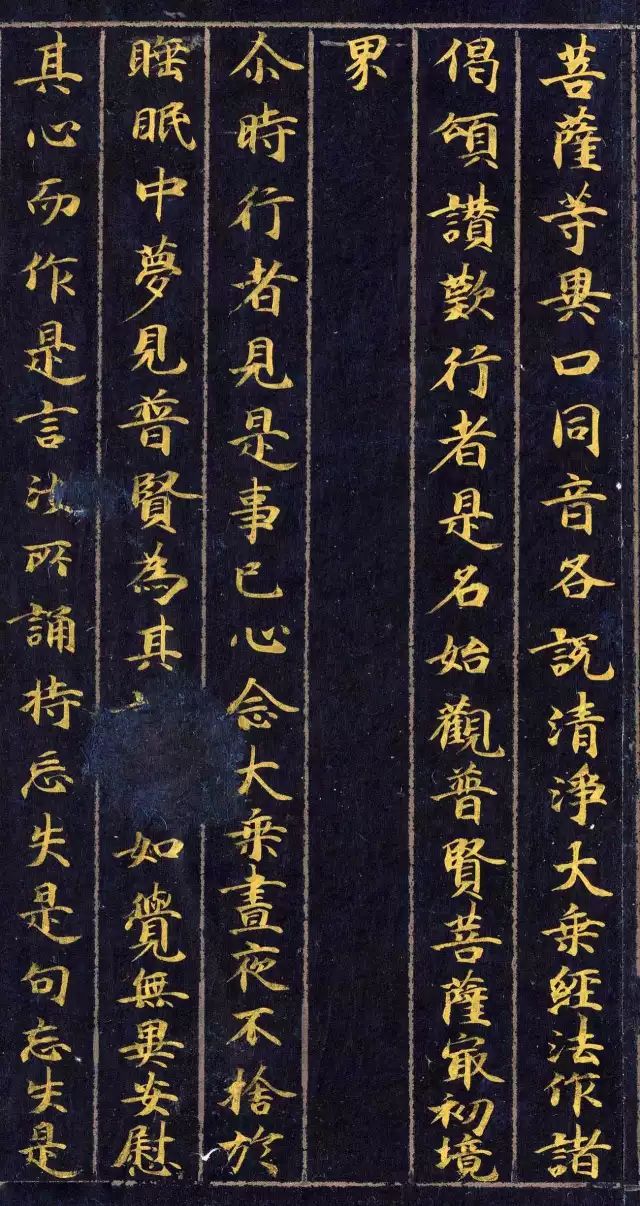 菩薩等異口同音各說清淨大乗經法作諸
偈頌讃歎行者是名始觀普賢菩薩冣初境
界
尒時行者見是事已心念大乗晝夜不捨於
睡眠中夢見普賢為其如覺無異安慰
其心而作是言汝所誦持忘失是句忘失是